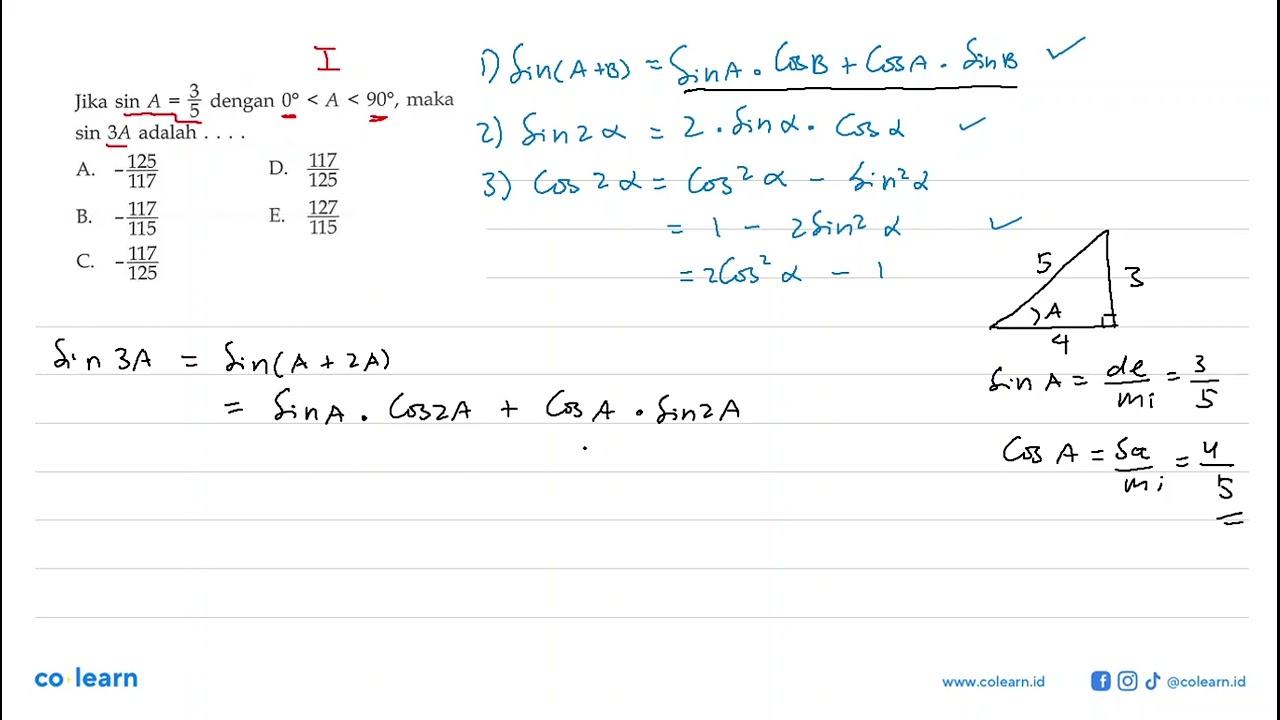 I
Jika sin A = 3/5 dengan 0° < A < 90°, maka
sin 3A adalah . . . .
A. -125/117
B. -117/115
C. -117/125
D. 117/125
E. 127/115
1) Sin(A+B) = SinA . CosB + CosA . SinB ✓
2) Sin2α = 2 . Sinα . Cosα ✓
3) Cos2α = Cos²α - Sin²α
= 1 - 2Sin²α ✓
= 2Cos²α - 1
5
3
A
4
Sin A = de/mi = 3/5
Cos A = sa/mi = 4/5
Sin 3A = Sin(A + 2A)
= SinA . Cos2A + CosA . Sin2A
co learn
www.colearn.id
@colearn.id